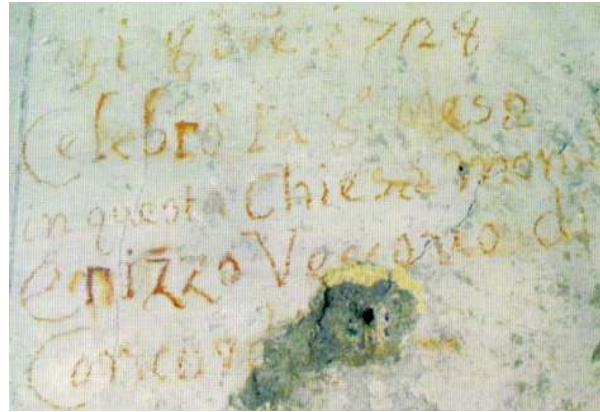 1728
Celebrò la S.ª Mesa
in questa Chiesa mon
Enizzo Vescovo di
Concor